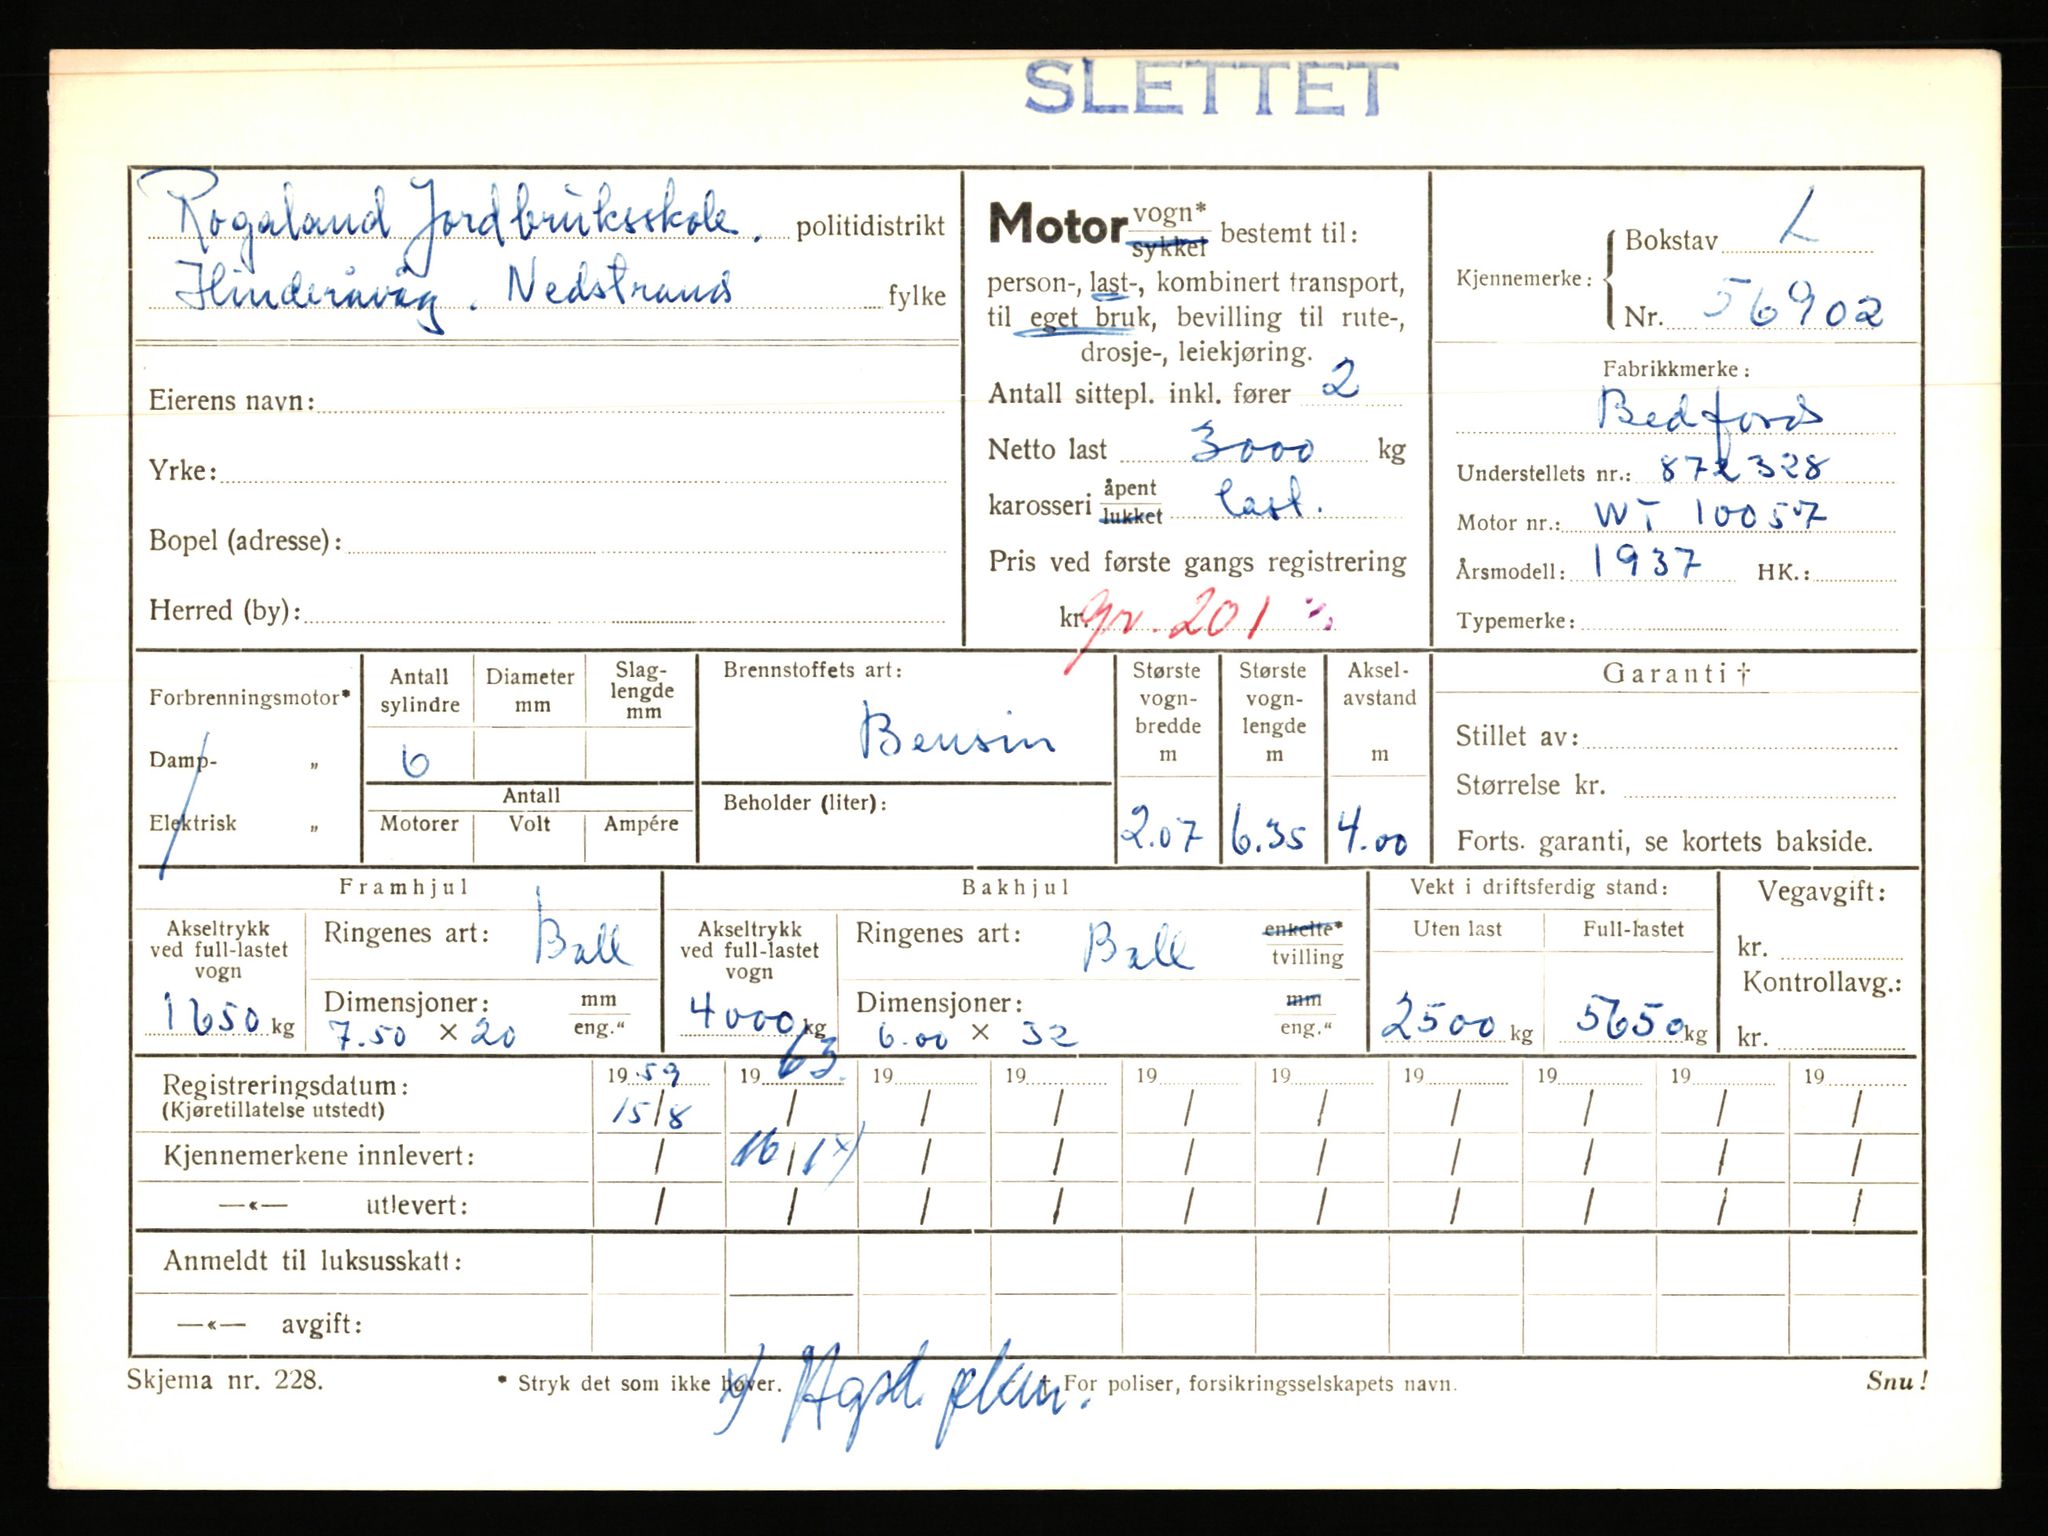 SLETTET
Rogaland Jordbruksskole. politidistrikt
Hinderåvåg. Nedstrand fylke
Eierens navn:
Yrke:
Bopel (adresse):
Herred (by):
Motor vogn* sykkel bestemt til:
person-, last-, kombinert transport,
til eget bruk, bevilling til rute-,
drosje-, leiekjøring.
Antall sittepl. inkl. fører 2
Netto last 3000 kg
karosseri åpent lukket last.
Pris ved første gangs registrering
kr. gr. 201
Kjennemerke: Bokstav L
Nr. 56902
Fabrikkmerke:
Bedford
Understellets nr.: 872328
Motor nr.: WT 10057
Årsmodell: 1937 HK.:
Typemerke:
Forbrenningsmotor*
Damp- „
Elektrisk „
Antall sylindre
6
Diameter mm
Slag-lengde mm
Antall
Motorer Volt Ampére
Brennstoffets art:
Bensin
Beholder (liter):
Største vogn-bredde m
2.07
Største vogn-lengde m
6.35
Aksel-avstand m
4.00
Garanti †
Stillet av:
Størrelse kr.
Forts. garanti, se kortets bakside.
Framhjul
Akseltrykk ved full-lastet vogn
1650 kg
Ringenes art: Ball
Dimensjoner: mm eng."
7.50 × 20
Bakhjul
Akseltrykk ved full-lastet vogn
4000 kg
Ringenes art: Ball enkelte* tvilling
Dimensjoner: mm eng."
6.00 × 32
Vekt i driftsferdig stand:
Uten last Full-lastet
2500 kg 5650 kg
Vegavgift:
kr.
Kontrollavg.:
kr.
Registreringsdatum: 19 59 19 63. 19 19 19 19 19 19 19 19
(Kjøretillatelse utstedt) 15/8 / / / / / / / / /
Kjennemerkene innlevert: / 16/1 x) / / / / / / / /
—«— utlevert: / / / / / / / / / /
Anmeldt til luksusskatt:
—«— avgift:
Skjema nr. 228. * Stryk det som ikke høver. † For poliser, forsikringsselskapets navn. Snu!
x)